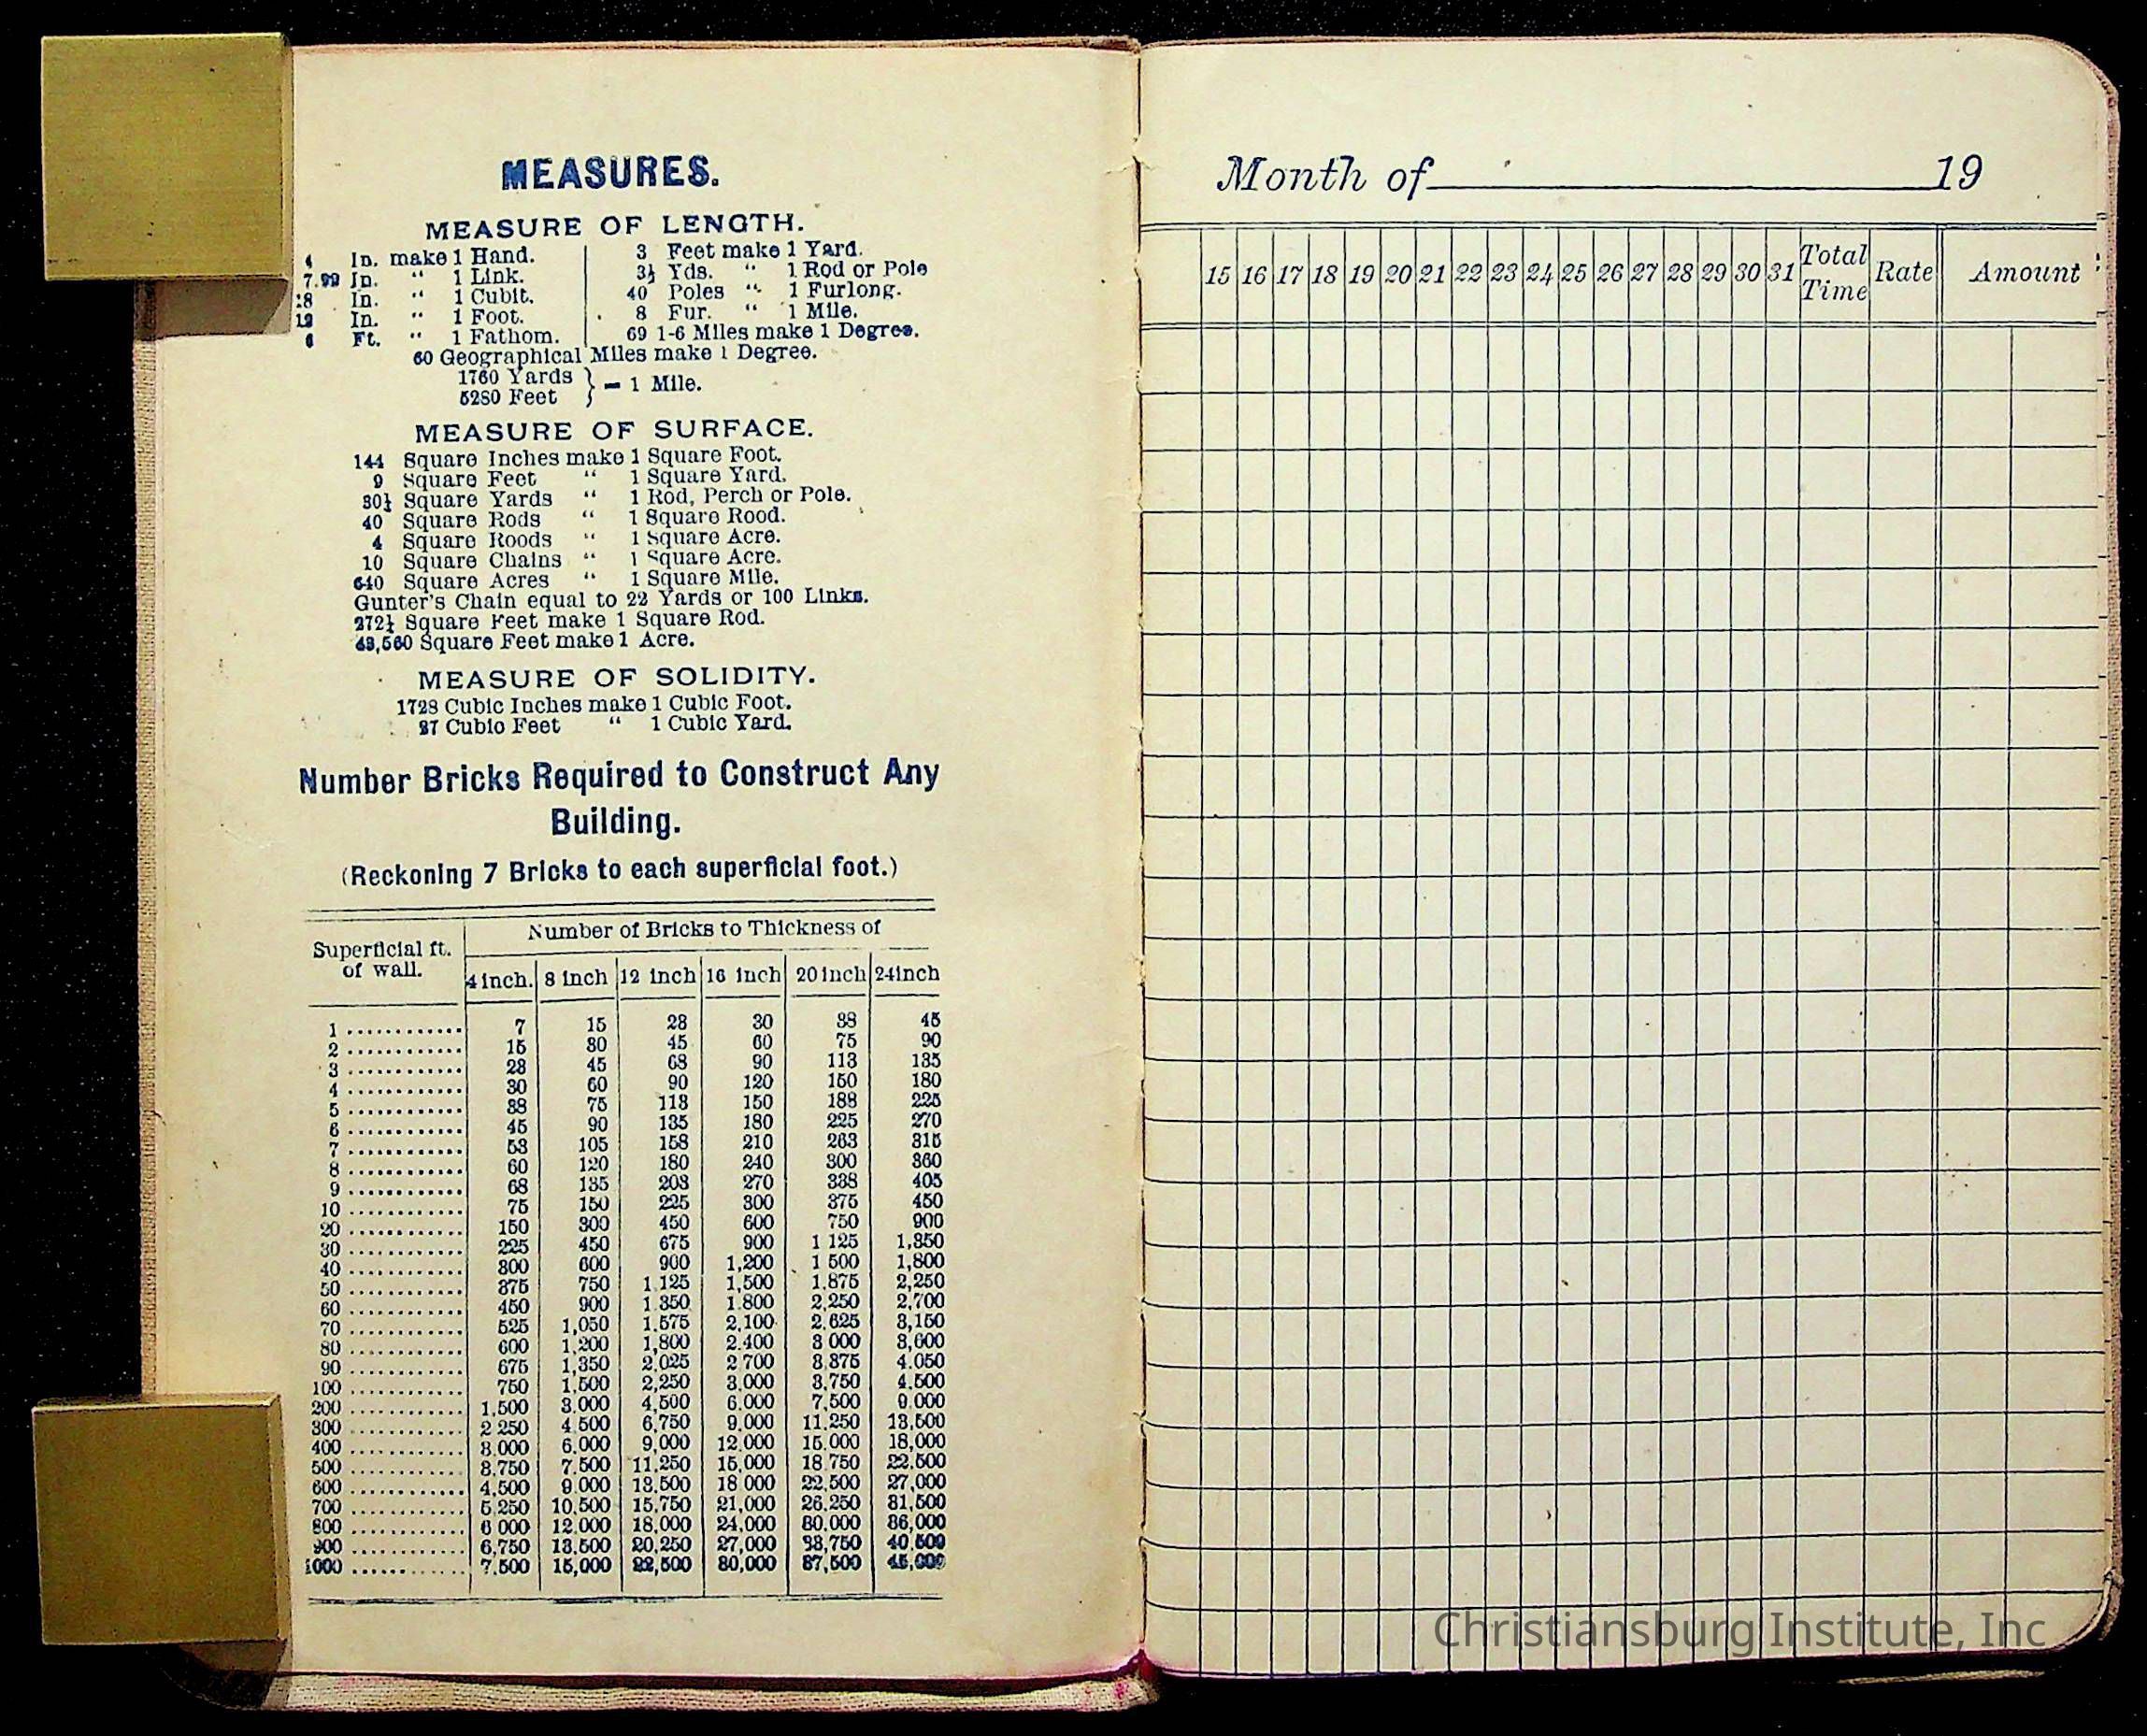 MEASURES.
MEASURE OF LENGTH.
4 In. make 1 Hand. 3 Feet make 1 Yard.
7.92 In. “ 1 Link. 5½ Yds. “ 1 Rod or Pole
18 In. “ 1 Cubit. 40 Poles “ 1 Furlong.
12 In. “ 1 Foot. 8 Fur. “ 1 Mile.
6 Ft. “ 1 Fathom. 69 1-6 Miles make 1 Degree.
60 Geographical Miles make 1 Degree.
1760 Yards
5280 Feet } = 1 Mile.
MEASURE OF SURFACE.
144 Square Inches make 1 Square Foot.
9 Square Feet “ 1 Square Yard.
30¼ Square Yards “ 1 Rod, Perch or Pole.
40 Square Rods “ 1 Square Rood.
4 Square Roods “ 1 Square Acre.
10 Square Chains “ 1 Square Acre.
640 Square Acres “ 1 Square Mile.
Gunter's Chain equal to 22 Yards or 100 Links.
272¼ Square Feet make 1 Square Rod.
43,560 Square Feet make 1 Acre.
MEASURE OF SOLIDITY.
1728 Cubic Inches make 1 Cubic Foot.
27 Cubic Feet “ 1 Cubic Yard.
Number Bricks Required to Construct Any
Building.
(Reckoning 7 Bricks to each superficial foot.)
Superficial ft. of wall. Number of Bricks to Thickness of
4 inch. 8 inch 12 inch 16 inch 20 inch 24 inch
1 ............ 7 15 23 30 38 45
2 ............ 15 30 45 60 75 90
3 ............ 23 45 68 90 113 135
4 ............ 30 60 90 120 150 180
5 ............ 38 75 113 150 188 225
6 ............ 45 90 135 180 225 270
7 ............ 53 105 158 210 263 315
8 ............ 60 120 180 240 300 360
9 ............ 68 135 203 270 338 405
10 ............ 75 150 225 300 375 450
20 ............ 150 300 450 600 750 900
30 ............ 225 450 675 900 1 125 1,350
40 ............ 300 600 900 1,200 1 500 1,800
50 ............ 375 750 1.125 1,500 1,875 2,250
60 ............ 450 900 1.350 1.800 2,250 2,700
70 ............ 525 1,050 1.575 2,100 2.625 3,150
80 ............ 600 1,200 1,800 2.400 3 000 3,600
90 ............ 675 1,350 2,025 2 700 3,375 4.050
100 ............ 750 1,500 2,250 3.000 3,750 4.500
200 ............ 1,500 3.000 4,500 6.000 7,500 9.000
300 ............ 2 250 4 500 6,750 9,000 11,250 13,500
400 ............ 3.000 6.000 9,000 12.000 15.000 18,000
500 ............ 3.750 7.500 11,250 15,000 18 750 22.500
600 ............ 4,500 9.000 13.500 18 000 22,500 27,000
700 ............ 5.250 10,500 15,750 21,000 26,250 31,500
800 ............ 6 000 12.000 18,000 24,000 30.000 36,000
900 ............ 6,750 13,500 20,250 27,000 33,750 40,500
1000 ............ 7.500 15,000 22,500 30,000 37,500 45,000
Month of 19
15 16 17 18 19 20 21 22 23 24 25 26 27 28 29 30 31 Total Time Rate Amount
Christiansburg Institute, Inc